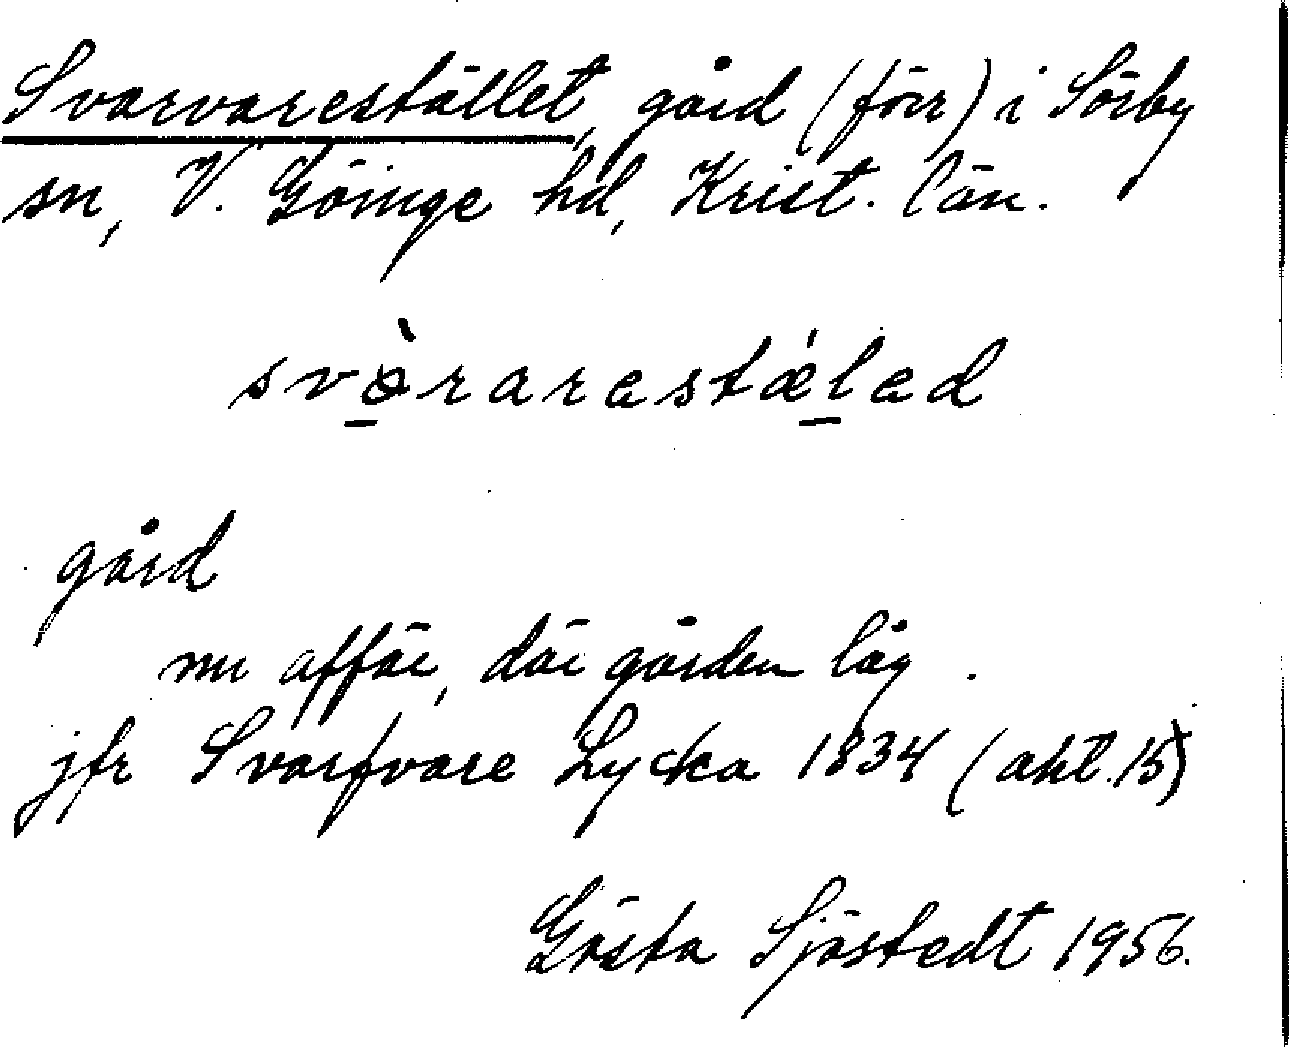 Svarvarestället, gård (förr) i Sörby
sn, V. Göinge hd, Krist. län.
svə̀rarestǽled
gård
nu affär, där gården låg.
jfr Svarfvare Lycka 1834 (akt. 15)
Gösta Sjöstedt 1956.